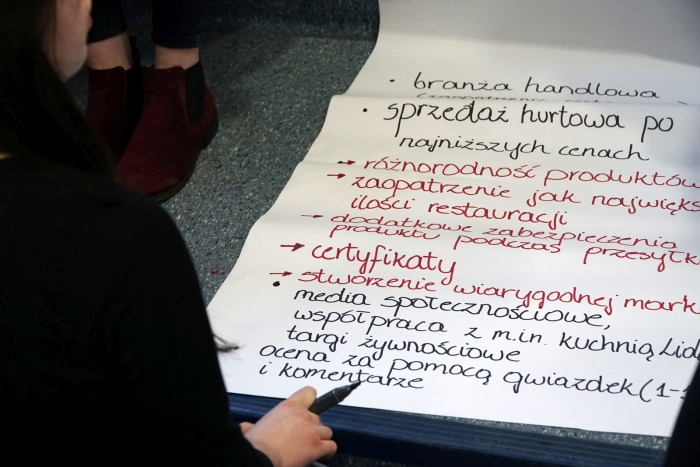 • branża handlowa
• sprzedaż hurtowa po
najniższych cenach
→ różnorodność produktów
→ zaopatrzenie jak najwięks
ilości restauracji
→ dodatkowe zabezpieczenia
produktu podczas przesyłk
→ certyfikaty
→ stworzenie wiarygodnej mark
• media społecznościowe,
współpraca z m.in. kuchnią Lid
targi żywnościowe
ocena za pomocą gwiazdek (1-
i komentarze